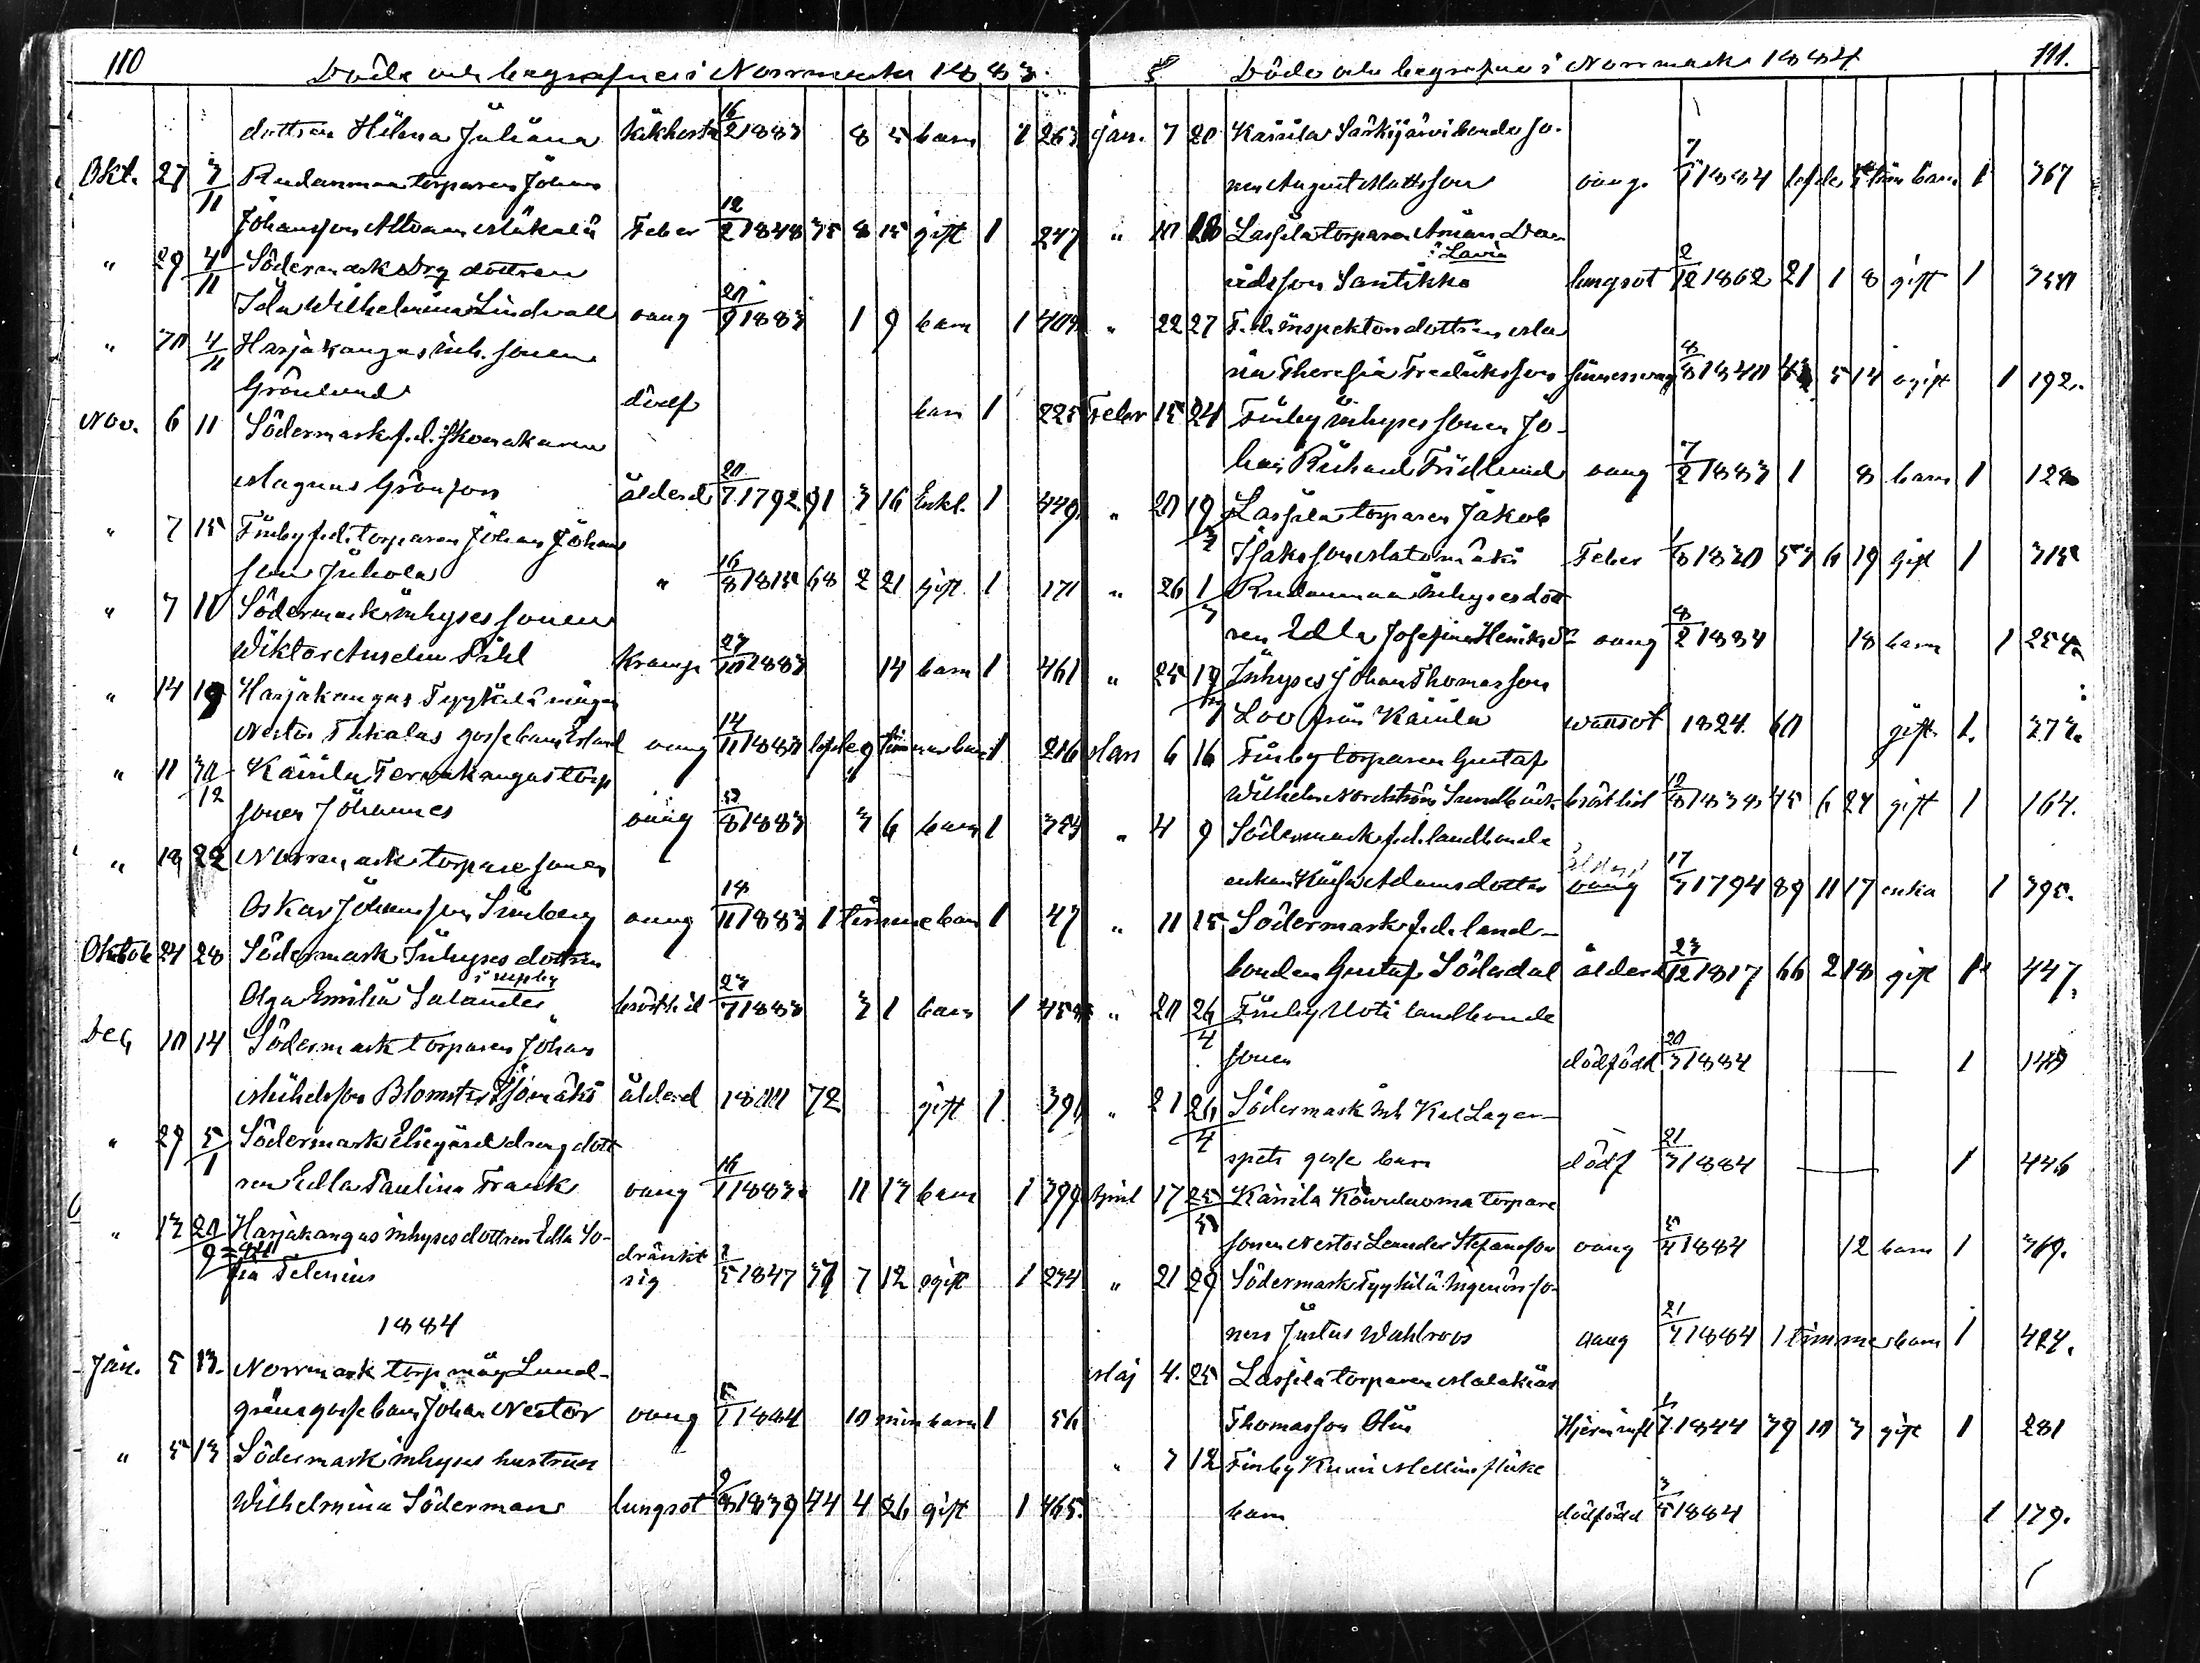 110
Döde och begrafne i Norrmark 1883.
dottren Helena Juliana kikhosta 16/2 1883 8 5 barn 1 263
Okt. 27 3/11 Rudanmaa torparen Johan
Johansson Altonen Mäkelä Feber 12/2 1848 35 8 15 gift 1 247
" 29 4/11 Södermark Drg dottren
Ida Wilhelmina Lindvall oang 20/9 1883 1 9 barn 1 409
" 30 4/11 Harjakangas inh. sonen
Grönlund dödf barn 1 225
Nov. 6 11 Södermark f.d. skomakaren
Magnus Grönfors ålderd 20/7 1792 91 3 16 Enkl. 1 449.
" 7 15 Finby f.d. torparen Johan Johans
son Juhola " 16/8 1815 68 2 21 gift 1 171
" 7 10 Södermark inhyses sonen
Wiktor Anselm Pihl Kramp 27/10 1883 14 barn 1 461
" 14 19 Harjakangas Tyykilä mågen
Nestor gossebarn oang 14/11 1883 9 timmar barn 1 216
" 11 30/12 Kairila torp
sonen Johannes oang 5/8 1883 3 6 barn 1 354
" 18 22 Norrmark torpare sonen
Oskar Johansson oang 18/11 1883 1 timme barn 1 47
Oktob 24 28 Södermark Inhyses dottren
Olga Emilia Salander bröstlid 23/7 1883 3 1 barn 1
Dec. 10 14 Södermark torparen Johan
Michelsson Blomster ålderd 1811 72 gift 1 391
" 29 5/1 Södermark drg dott
ren Edla Paulina Frank oang 16/1 1883. 11 13 barn 1 399
" 13 20 Harjakangas inhyses dottren Edla So-
fia Selenius dränkt sig 1/5 1847 7 12 ogift 1 234
1884
Jan. 5 13. Norrmark torp. måg Lund-
gréns gossebarn Johan Nestor oang 5/1 1884 10 min barn 1 56
" 5 13 Södermark inhyses hustrun
Wilhelmina Söderman lungsot 9/8 1839 44 4 26 gift 1 465.
Döde och begrafne i Norrmark 1884
111.
Jan. 7 20 Kairila Särkijärvi bonde so-
nen August Mattsson oang. 7/1 1884 5 tim barn 1 367
" 10 18 Lassila torparen
i Lavia
idsson Santikko lungsot 2/12 1862 21 1 8 gift 1
" 22 27 F.d. inspektors dottren Ma
ria Theresia Fredriksson sinnessvag 8/8 1840 5 14 ogift 1 192.
Febr 15 24 Finby inhyses sonen Jo-
han Richard Fridlund oang 7/2 1883 1 8 barn 1
" 20 19/3 Lassila torparen Jakob
Isaksson Matomäki Feber 1/8 1830 53 6 19 gift 1 315
" 26 1/3 Rudanmaa inhyses dott
ren Edla Josefina oang 8/2 1884 18 barn 1
" 25 19 Inhyses Johan Thomasson
Lov från Kairila wattsot 1824. 60 gift 1. 373.
Mars 6 16 Finby torparen Gustaf
Wilhelm Sundbäck bröstlid 10/8 1838 45 6 27 gift 1 164.
" 4 9 Södermark f.d. landbonde
enkan Kaisa Adamsdotter oang 17/3 1794 89 11 17 enka 1 395.
" 11 15 Södermark f.d. land-
bonden Gustaf Söderdal ålderd 23/12 1817 66 2 18 gift 1 447.
" 20 26/4 Finby Uoti landbonde
sonen dödfödd 20/3 1884 1
" 21 26/4 Södermark inh Karl Lager-
spets gosse barn dödf 21/3 1884 1 446
April 17 25/5 Kairila torpare
sonen Nestor Leander Stefansson oang 5/4 1884 12 barn 1 369.
" 21 29 Södermark Tyykilä Ingeniörs so-
nen Justus Wahlroos oang 21/4 1884 1 timme barn 1 424.
Maj 4. 25 Lassila torparen Malakias
Thomasson Hjerninfl 1/7 1844 39 10 3 gift 1 281
" 7 12 Finby flicke
barn dödfödd 3/5 1884 1 179.